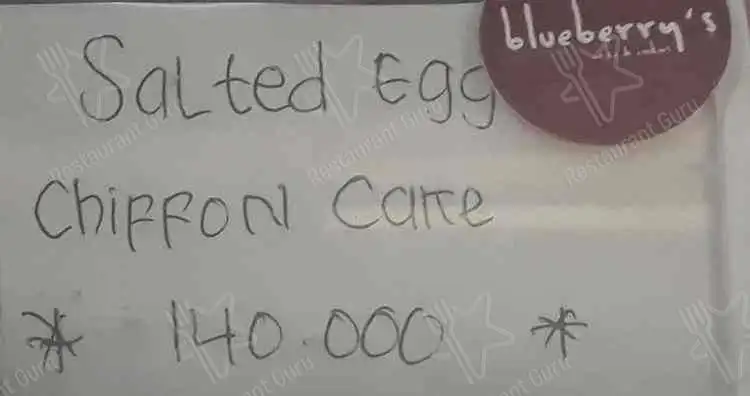 blueberry's
Salted Egg
Chiffon Cake
* 140.000 *
Restaurant Guru
Restaurant Guru
Restaurant Guru
Restaurant Guru
Restaurant Guru
Restaurant Guru